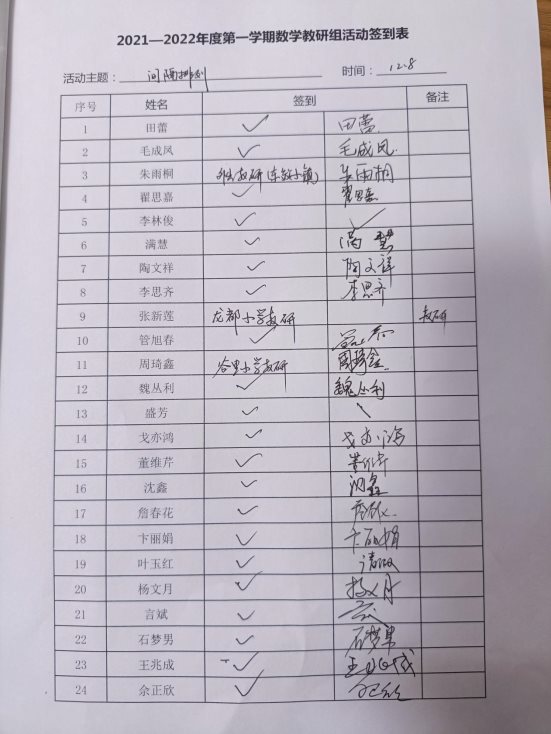 2021—2022年度第一学期数学教研组活动签到表
活动主题：间隔排列 时间：12.8
序号 姓名 签到 备注
1 田蕾 ✓ 田蕾
2 毛成凤 ✓ 毛成凤
3 朱雨桐 朱雨桐
4 翟思嘉 ✓ 翟思嘉
5 李林俊 ✓ ✓
6 满慧 ✓ 满慧
7 陶文祥 ✓ 陶文祥
8 李思齐 ✓ 李思齐
9 张新莲 龙都小学教研 教研
10 管旭春 ✓
11 周琦鑫 谷里小学教研 周琦鑫
12 魏丛利 ✓ 魏丛利
13 盛芳 ✓
14 戈亦鸿 ✓ 戈亦鸿
15 董维芹 ✓
16 沈鑫 ✓ 沈鑫
17 詹春花 ✓
18 卞丽娟 ✓ 卞丽娟
19 叶玉红 ✓
20 杨文月 ✓ 杨文月
21 言斌 ✓
22 石梦男 ✓ 石梦男
23 王兆成 ✓ 王兆成
24 余正欣 ✓